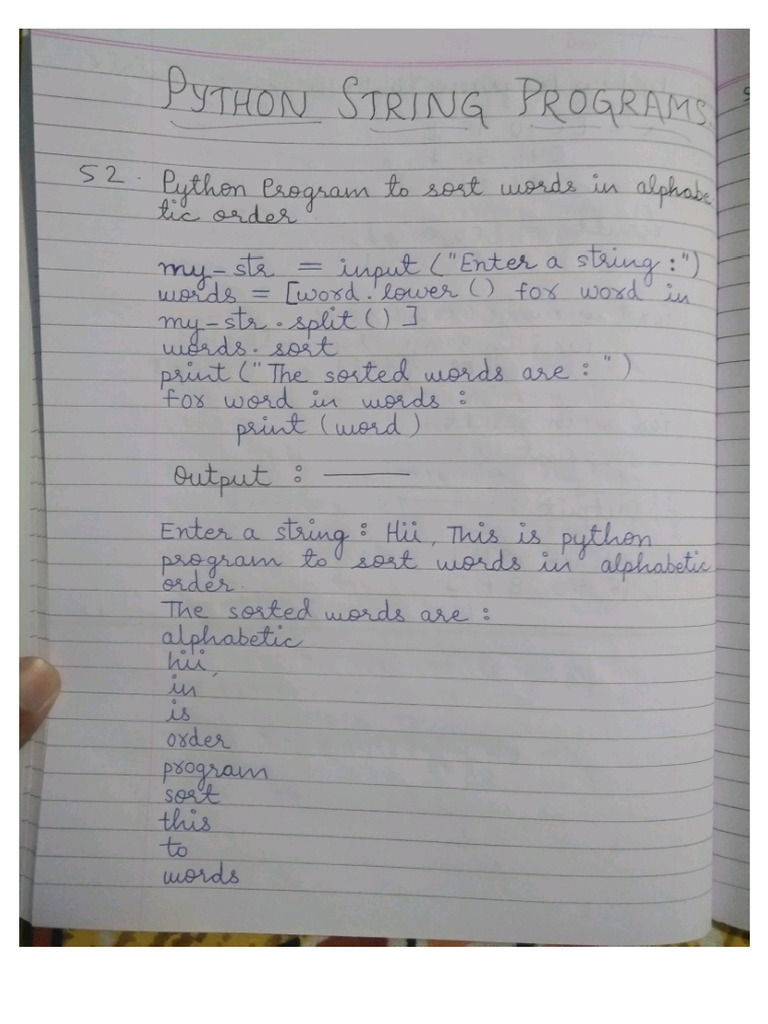 PYTHON STRING PROGRAMS.
52. Python Program to sort words in alphabe
tic order
my-str = input ("Enter a string :")
words = [word.lower () for word in
my-str.split () ]
words.sort
print ("The sorted words are : ")
for word in words :
print (word)
Output :
Enter a string : Hii, This is python
program to sort words in alphabetic
order.
The sorted words are :
alphabetic
hii,
in
is
order
program
sort
this
to
words